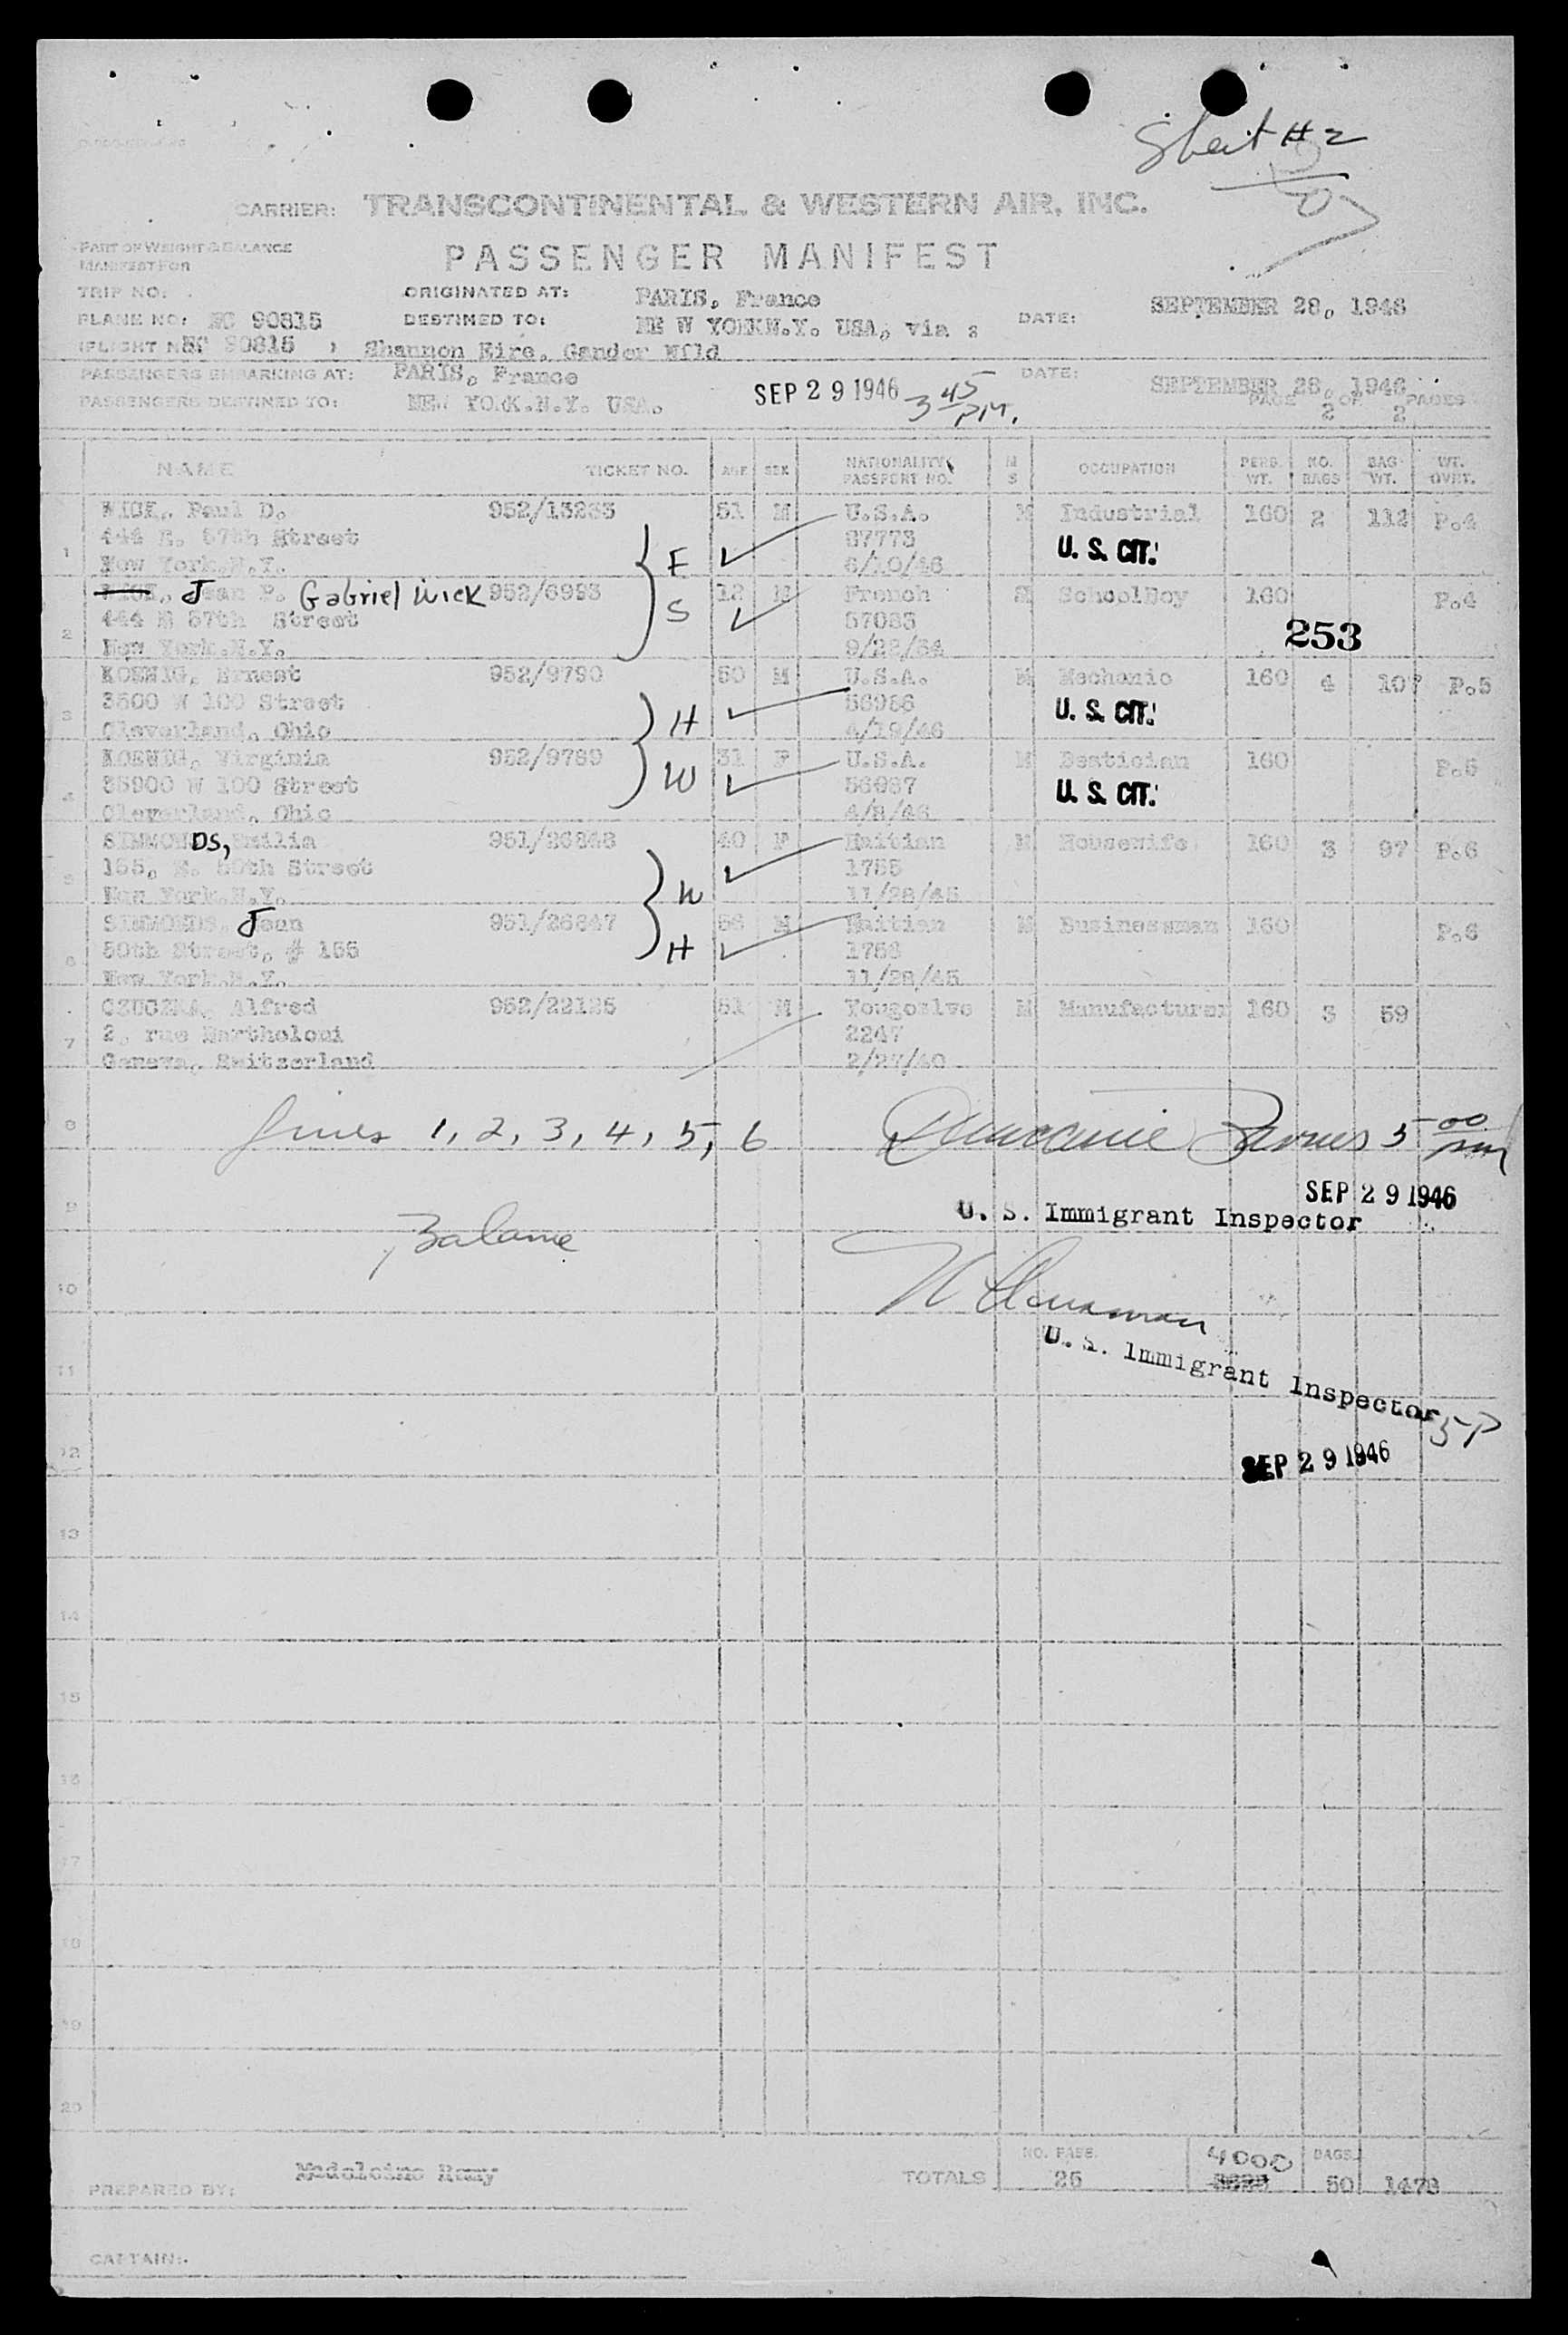 Sheet #2
CARRIER: TRANSCONTINENTAL & WESTERN AIR, INC.
PART OF WEIGHT & BALANCE
MANIFEST FOR
PASSENGER MANIFEST
TRIP NO:
ORIGINATED AT: PARIS, France
SEPTEMBER 28, 1946
PLANE NO: NC 90815
DESTINED TO: NE W YORKN.Y. USA, via :
DATE:
(FLIGHT NC 90815 ) Shannon Eire, Gander Nfld
PASSENGERS EMBARKING AT: PARIS, France
DATE: SEPTEMBER 28, 1946
PASSENGERS DESTINED TO: NEW YORK.N.Y. USA.
SEP 29 1946 3 45 PM.
PAGE 2 OF 2 PAGES
NAME TICKET NO. AGE SEX NATIONALITY PASSPORT NO. M S OCCUPATION PERS. WT. NO. BAGS BAG. WT. WT. OVRT.
1 WICK, Paul D. 952/13233 51 M U.S.A. M Industrial 160 2 112 P.4
444 E. 57th Street F 87773 U. S. CIT.
New York.N.Y. 6/10/46
2 Jean P. Gabriel Wick 952/6993 12 M French SchoolBoy 160 P.4
444 E 57th Street S 57083 253
New York.N.Y.
3 KOENIG, Ernest 952/9790 50 M U.S.A. M Mechanic 160 4 107 P.5
3500 W 100 Street H 56986 U. S. CIT.
Cleverland, Ohio 4/19/46
4 KOENIG, Virginia 952/9789 31 F U.S.A. M Beatician 160 P.5
35900 W 100 Street W 56987 U. S. CIT.
Cleverland, Ohio 4/8/46
5 SIMMONDS, Emilia 951/26848 40 F Haitian M Housewife 160 3 97 P.6
155, E. 50th Street W 1755
New York.N.Y. 11/28/45
6 SIMMONDS, Jean 951/26847 56 M Haitian M Businessman 160 P.6
50th Street, # 155 H 1756
New York.N.Y. 11/28/45
7 CZUCZKA, Alfred 952/22125 51 M Yougoslve M Manufacturer 160 3 59
2, rue Bartholoni 2247
Geneva, Switzerland 2/27/40
8 Lines 1, 2, 3, 4, 5, 6 5 00 PM
SEP 29 1946
9 U. S. Immigrant Inspector
Balance
10
U. S. Immigrant Inspector 5P
11
12 SEP 29 1946
13
14
15
16
17
18
19
20
PREPARED BY: Madeleine Remy
TOTALS NO. PASS. 25 4000 BAGS 50 1478
CAPTAIN: